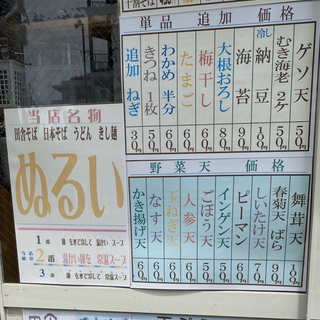 単品 追加 価格
追加ねぎ 30円
きつね1枚 50円
わかめ半分 60円
たまご 60円
梅干し 60円
大根おろし 80円
海苔 90円
冷し納豆 100円
むき海老2ケ
ゲソ天 50円
当店名物
田舎そば 日本そば うどん きし麺
ぬるい
1番 麺を水で冷して 温かいスープ
2番 温かい麺を 常温スープ
3番 麺を水で冷して 常温スープ
野菜天 価格
かき揚げ天 60円
なす天 60円
玉ねぎ天 60円
人参天 60円
ごぼう天 60円
インゲン天 60円
ピーマン 60円
しいたけ天 70円
春菊天ばら 90円
舞茸天